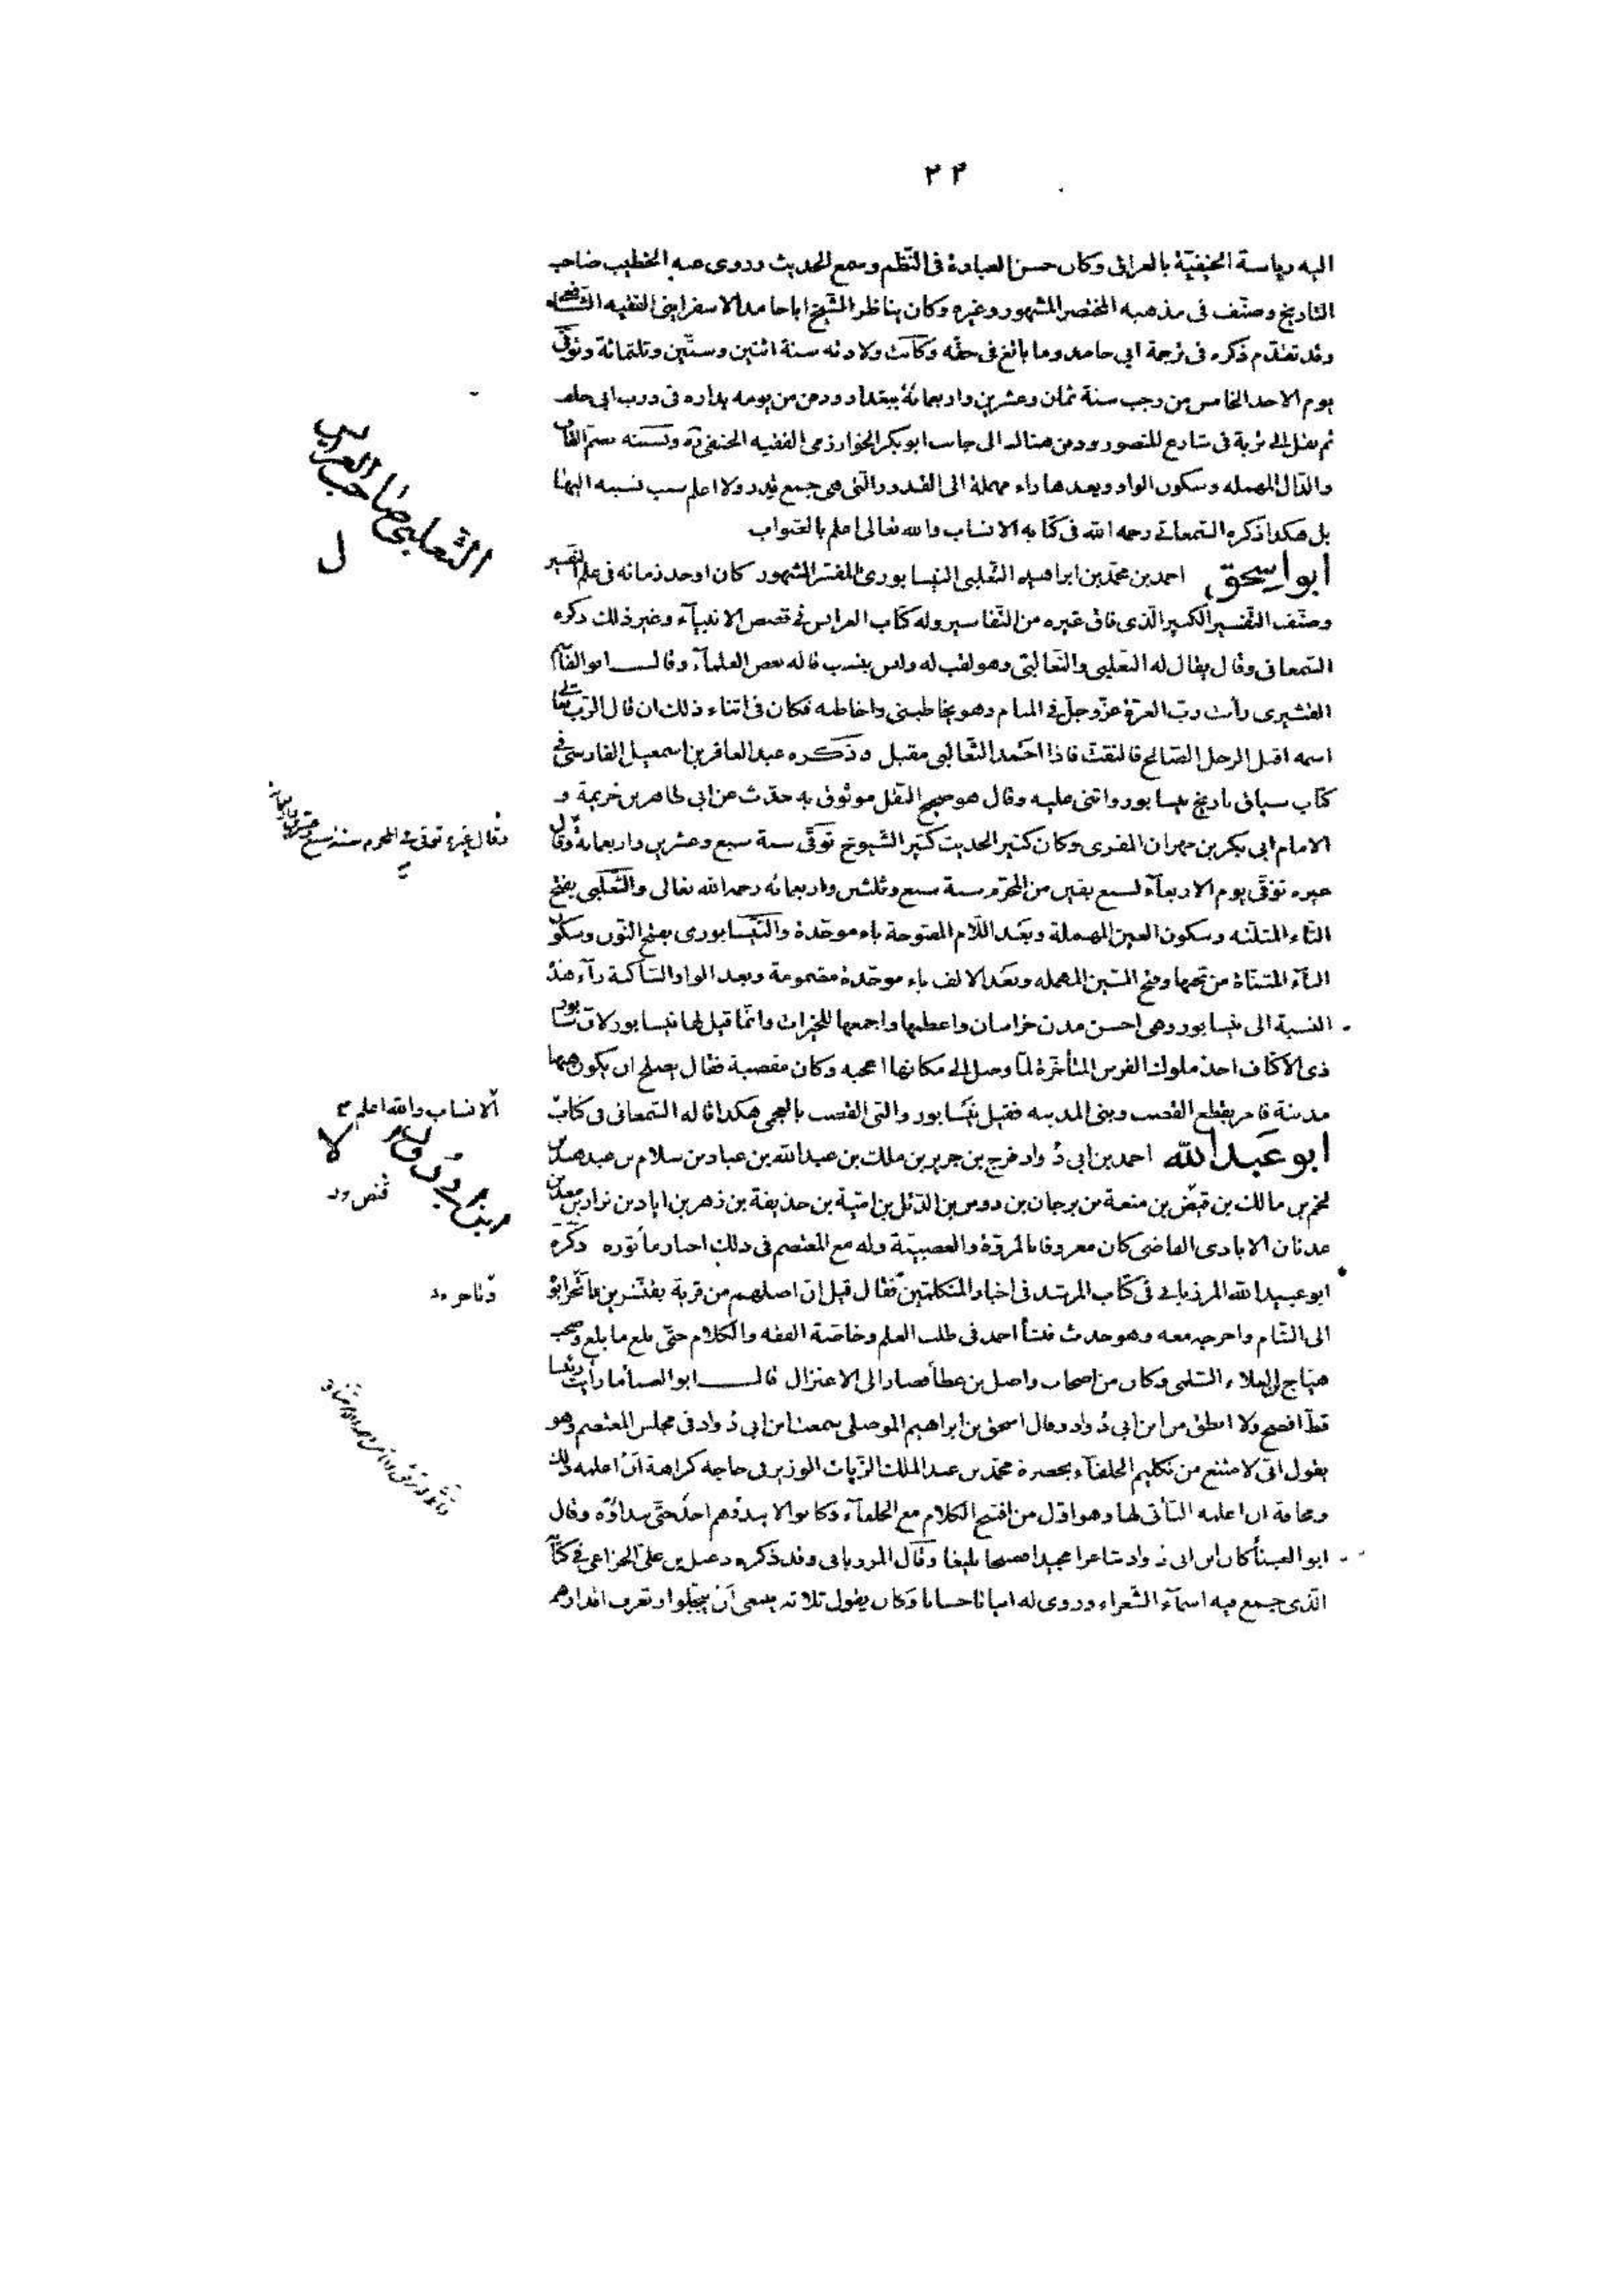 ٢٣
اليه رياسة الحنفيّة بالعراق وكان حسن العبادة فى النّظم وسمع الحديث وروى عنه الخطيب صاحب
التاريخ وصنّف فى مذهبه المختصر المشهور وغيره وكان يناظر الشّيخ ابا حامد الاسفراينى الفقيه الشافعى
وقد تقدّم ذكره فى ترجمة ابى حامد وما بالغ فى حقّه وكانت ولادته سنة اثنتين وستّين وثلثمائة وتوفّى
يوم الاحد الخامس من رجب سنة ثمان وعشرين واربعمائة ببغداد ودفن من يومه بداره فى درب ابى خلف
ثم نقل الى تربة فى شارع المنصور ودفن هناك الى جانب ابو بكر الخوارزمى الفقيه الحنفى ونسبته بضم القاف
والدّال المهمله وسكون الواو وبعدها راء مهملة الى القدور التى هى جمع قدر ولا اعلم سبب نسبه اليها
بل هكذا ذكره السّمعانى رحمه الله فى كتابه الانساب والله تعالى اعلم بالصّواب
ابو اسحق احمد بن محمّد بن ابراهيم الثّعلبى النيسابورى المفسّر المشهور كان اوحد زمانه فى علم التفسير
وصنّف التّفسير الكبير الّذى فاق غيره من التّفاسير وله كتاب العرايس فى قصص الانبيآء وغير ذلك ذكره
السّمعانى وقال يقال له الثّعلبى والثّعالبى وهو لقب له وليس بنسب قاله بعض العلمآء وقال ابو القاسم
القشيرى رأيت ربّ العزّة عزّ وجلّ فى المنام وهو يخاطبنى واخاطبه فكان فى اثناء ذلك ان قال الرّب تعالى
اسمه اقبل الرجل الصّالح فالتفتّ فاذا احمد الثّعالبى مقبل وذكره عبد الغافر بن اسمعيل الفارسى فى
كتاب سياق تاريخ نيسابور واثنى عليه وقال هو صحيح النّقل موثوق به حدّث عن ابى طاهر بن خزيمة و
الامام ابى بكر بن مهران المقرى وكان كثير الحديث كثير الشّيوخ توفّى سنة سبع وعشرين واربعمائة وقال
غيره توفّى يوم الاربعآء لسبع بقين من المحرّم سنة سبع وثلثين واربعمائه رحمه الله تعالى والثّعلبى بفتح
الثّاء المثلثه وسكون العين المهملة وبعد اللّام المفتوحة باء موحّدة والنّيسابورى بفتح النّون وسكون
اليآء المثنّاة من تحتها وفتح السّين المهمله وبعد الالف باء موحّدة مضمومة وبعد الواو السّاكنة رآء هذه
النسبة الى نيسابور وهى احسن مدن خراسان واعظمها واجمعها للخيرات وانّما قيل لها نيسابور لانّ سابور
ذى الاكتاف احد ملوك الفرس المتأخّرة لمّا وصل الى مكانها اعجبه وكان مقصبة فقال يصلح ان يكون ههنا
مدينة فامر بقطع القصب وبنى المدينه فقيل نيسابور والنى القصب بالعجمى هكذا قاله السّمعانى فى كتاب
ابو عبد الله احمد بن ابى دُواد فرج بن جرير بن ملك بن عبد الله بن عباد بن سلام بن عبد هند بن
لخم بن مالك بن قيض بن منعة بن برجان بن دوس بن الدّئل بن اميّة بن حذيفة بن زهر بن اياد بن نزار بن معد بن
عدنان الايادى القاضى كان معروفا بالمروّة والعصبيّة وله مع المعتصم فى ذلك اخبار مأثوره وذكره
ابو عبيد الله المرزبانى فى كتاب المرشد فى اخبار المتكلمين فقال قيل انّ اصلهم من قرية بقنّسرين
الى الشّام واخرجه معه وهو حدث فنشأ احمد فى طلب العلم وخاصّة الفقه والكلام حتّى بلغ ما بلغ وصحب
هيّاج بن العلاء السّلمى وكان من اصحاب واصل بن عطآ فصار الى الاعتزال قال ابو العينا ما رأيت رئيسا
قطّ افصح ولا انطق من ابن ابى دُواد وقال اسحق بن ابراهيم الموصلى سمعت ابن ابى دُواد فى مجلس المعتصم وهو
يقول انّى لامتنع من تكليم الخلفآء بحضرة محمّد بن عبد الملك الزّيات الوزير فى حاجه كراهة ان اعلمه ذلك
ومخافة ان اعلمه التأتى لها وهو اوّل من افتتح الكلام مع الخلفآء وكانوا لا يبدؤهم احد حتّى يبداؤه وقال
ابو العينآ كان ابن ابى دواد شاعرا مجيدا فصيحا بليغا وقال المرزبانى وقد ذكره دعبل بن علىّ الخزاعى فى كتابه
الّذى جمع فيه اسمآء الشّعراء وروى له ابياتا حسانا وكان يقول ثلاثه ينبغى ان يبجّلوا وتعرف اقدارهم
الثّعلبى صاحب العرايس
ل
وقال غيره توفى فى المحرم سنة سبع وعشرين واربعمائة
الانساب والله اعلم
لا